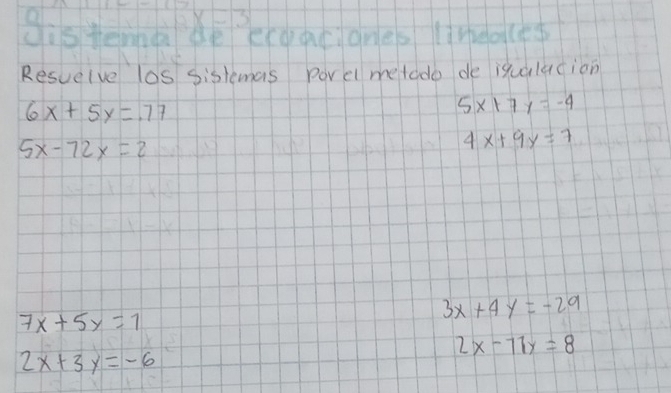 Sistema de ecuaciones lineales
Resuelve los sistemas por el metodo de igualacion
6x + 5y = 77
5x - 72y = 2
5x + 7y = -4
4x + 9y = 7
7x + 5y = 1
2x + 3y = -6
3x + 4y = -29
2x - 77y = 8